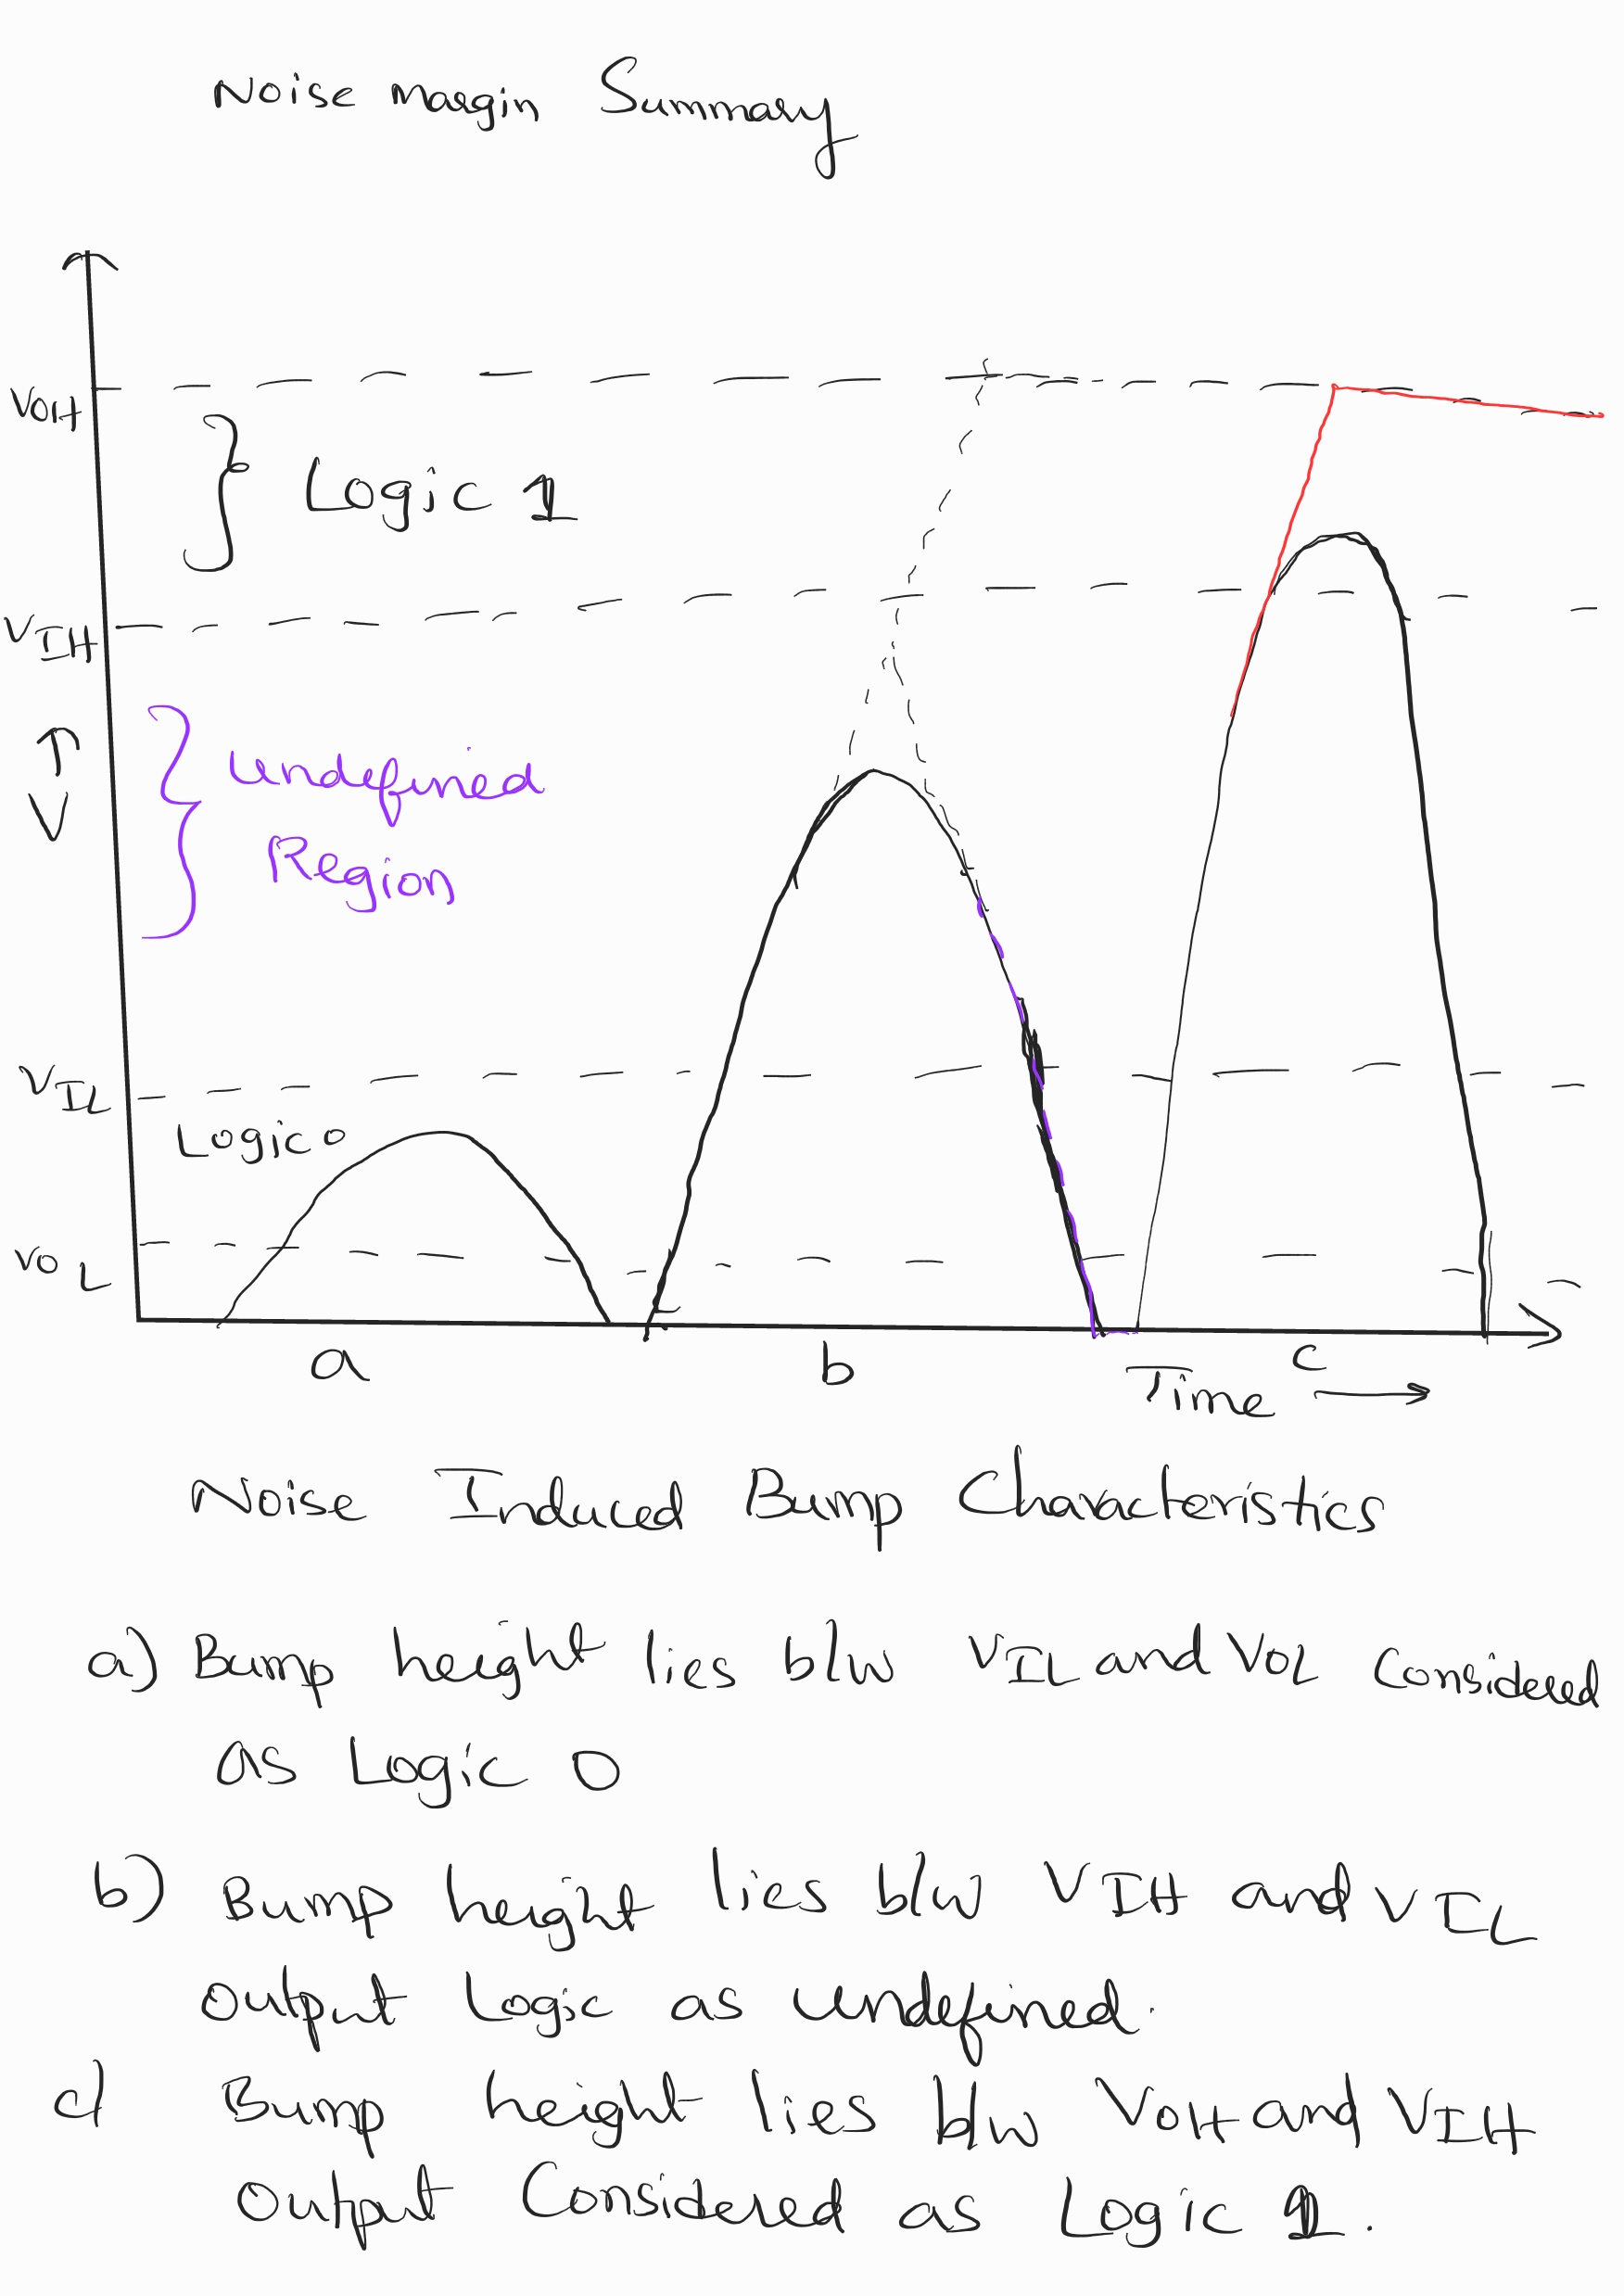 Noise margin Summary
VOH
Logic 1
VIH
undefined
Region
V
VIL
Logic 0
VOL
a
b
c
Time
Noise Induced Bump Characteristics
a) Bump height lies b/w VIL and VOL Considered
as Logic 0
b) Bump height lies b/w VIH and VIL
output Logic as undefined.
c) Bump height lies b/w VOH and VIH
output Considered as Logic 1.